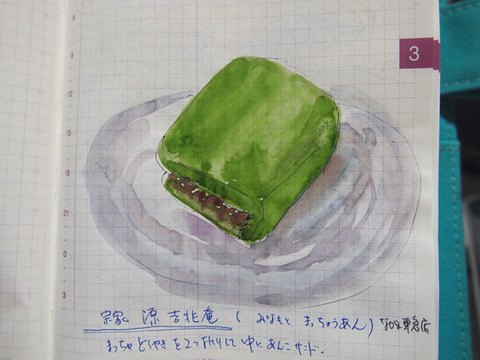 3
9
12
15
18
21
0
3
宗家 源 吉兆庵 (みなもと きっちょうあん) 東急店
まっちゃどらやきを2つ折りして中にあんこサンド.